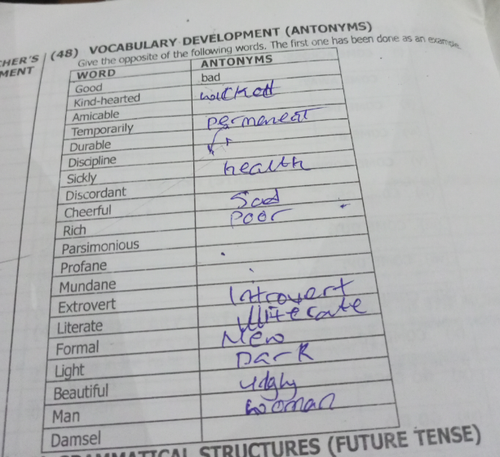 CHER'S
MENT
(48) VOCABULARY DEVELOPMENT (ANTONYMS)
Give the opposite of the following words. The first one has been done as an example.
WORD ANTONYMS
Good bad
Kind-hearted wicked
Amicable
Temporarily permenent
Durable
Discipline
Sickly health
Discordant
Cheerful Sad
Rich poor
Parsimonious
Profane
Mundane
Extrovert Introvert
Literate illiterate
Formal New
Light Dark
Beautiful udgly
Man woman
Damsel
GRAMMATICAL STRUCTURES (FUTURE TENSE)